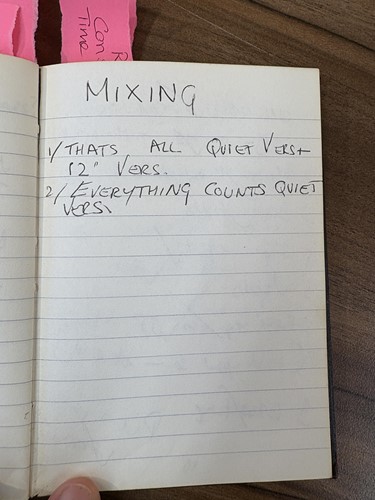 R
Con
Time
MIXING
1/ THATS ALL QUIET VERS +
12" VERS.
2/ EVERYTHING COUNTS QUIET
VERS.